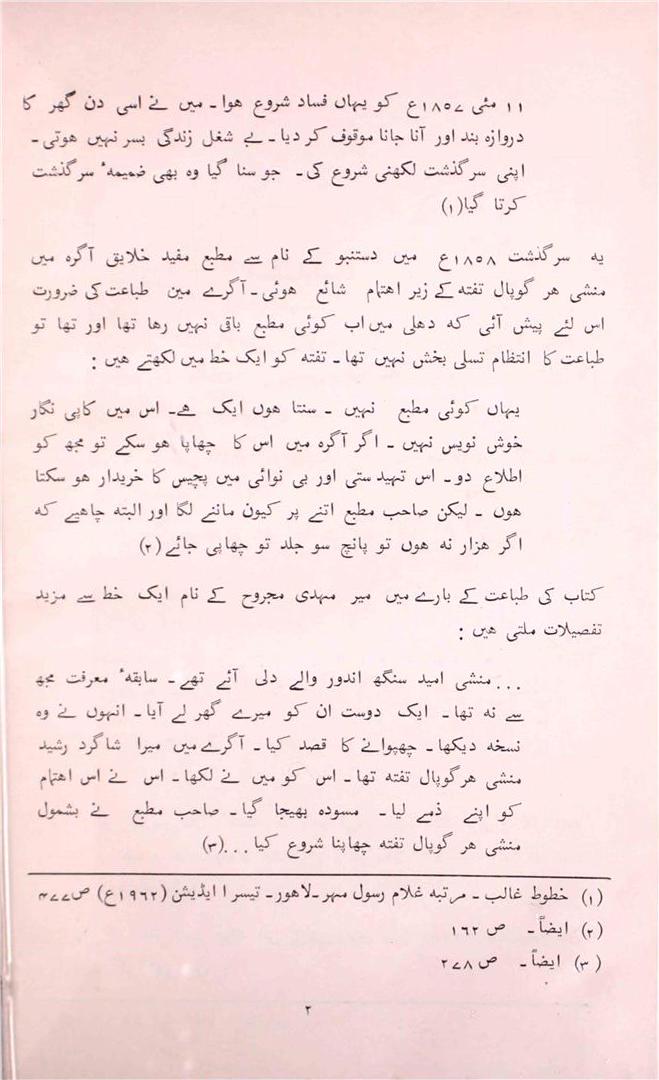 ۱۱ مئی ۱۸۵۷ع کو یہاں فساد شروع ہوا۔ میں نے اسی دن گھر کا
دروازہ بند اور آنا جانا موقوف کر دیا۔ بے شغل زندگی بسر نہیں ہوتی۔
اپنی سرگذشت لکھنی شروع کی۔ جو سنا گیا وہ بھی ضمیمهٴ سرگذشت
کرتا گیا(۱)
یہ سرگذشت ۱۸۵۸ع میں دستنبو کے نام سے مطبع مفید خلایق آگرہ میں
منشی ہر گوپال تفتہ کے زیر اہتمام شائع ہوئی۔ آگرے مین طباعت کی ضرورت
اس لئے پیش آئی کہ دہلی میں اب کوئی مطبع باقی نہیں رہا تھا اور تھا تو
طباعت کا انتظام تسلی بخش نہیں تھا۔ تفتہ کو ایک خط میں لکھتے ہیں :
یہاں کوئی مطبع نہیں ۔ سنتا ہوں ایک ہے۔ اس میں کاپی نگار
خوش نویس نہیں ۔ اگر آگرہ میں اس کا چھاپا ہو سکے تو مجھ کو
اطلاع دو۔ اس تہیدستی اور بی نوائی میں پچیس کا خریدار ہو سکتا
ہوں ۔ لیکن صاحب مطبع اتنے پر کیون ماننے لگا اور البتہ چاہیے کہ
اگر ہزار نہ ہوں تو پانچ سو جلد تو چھاپی جائے (۲)
کتاب کی طباعت کے بارے میں میر مہدی مجروح کے نام ایک خط سے مزید
تفصیلات ملتی ہیں :
...منشی امید سنگھ اندور والے دلی آئے تھے۔ سابقهٴ معرفت مجھ
سے نہ تھا۔ ایک دوست ان کو میرے گھر لے آیا۔ انہوں نے وہ
نسخہ دیکھا۔ چھپوانے کا قصد کیا۔ آگرے میں میرا شاگرد رشید
منشی ہرگوپال تفتہ تھا۔ اس کو میں نے لکھا۔ اس نے اس اہتمام
کو اپنے ذمے لیا۔ مسودہ بھیجا گیا۔ صاحب مطبع نے بشمول
منشی ہر گوپال تفتہ چھاپنا شروع کیا ...(۳)
(۱) خطوط غالب ۔ مرتبہ غلام رسول مہر۔لاہور۔ تیسرا ایڈیشن (۱۹۶۲ع) ص
(۲) ایضاً۔ ص ۱۶۲
(۳) ایضاً۔ ص ۲۷۸
۲